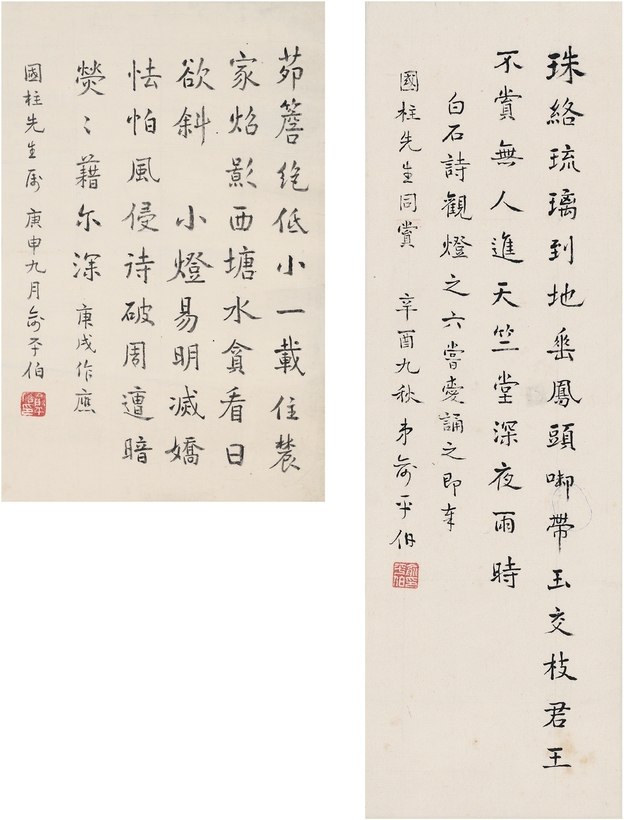 珠絡琉璃到地垂鳳頭啣帶玉交枝君王
不賞無人進天竺堂深夜雨時
白石詩觀燈之六嘗愛誦之即奉
國柱先生同賞 辛酉九秋弟俞平伯
茆簷絶低小一載住農
家炤影西塘水貪看日
欲斜 小燈易明滅嬌
怯怕風侵待破周遭暗
熒〻藉尔深 庚戌作應
國柱先生属 庚申九月俞平伯